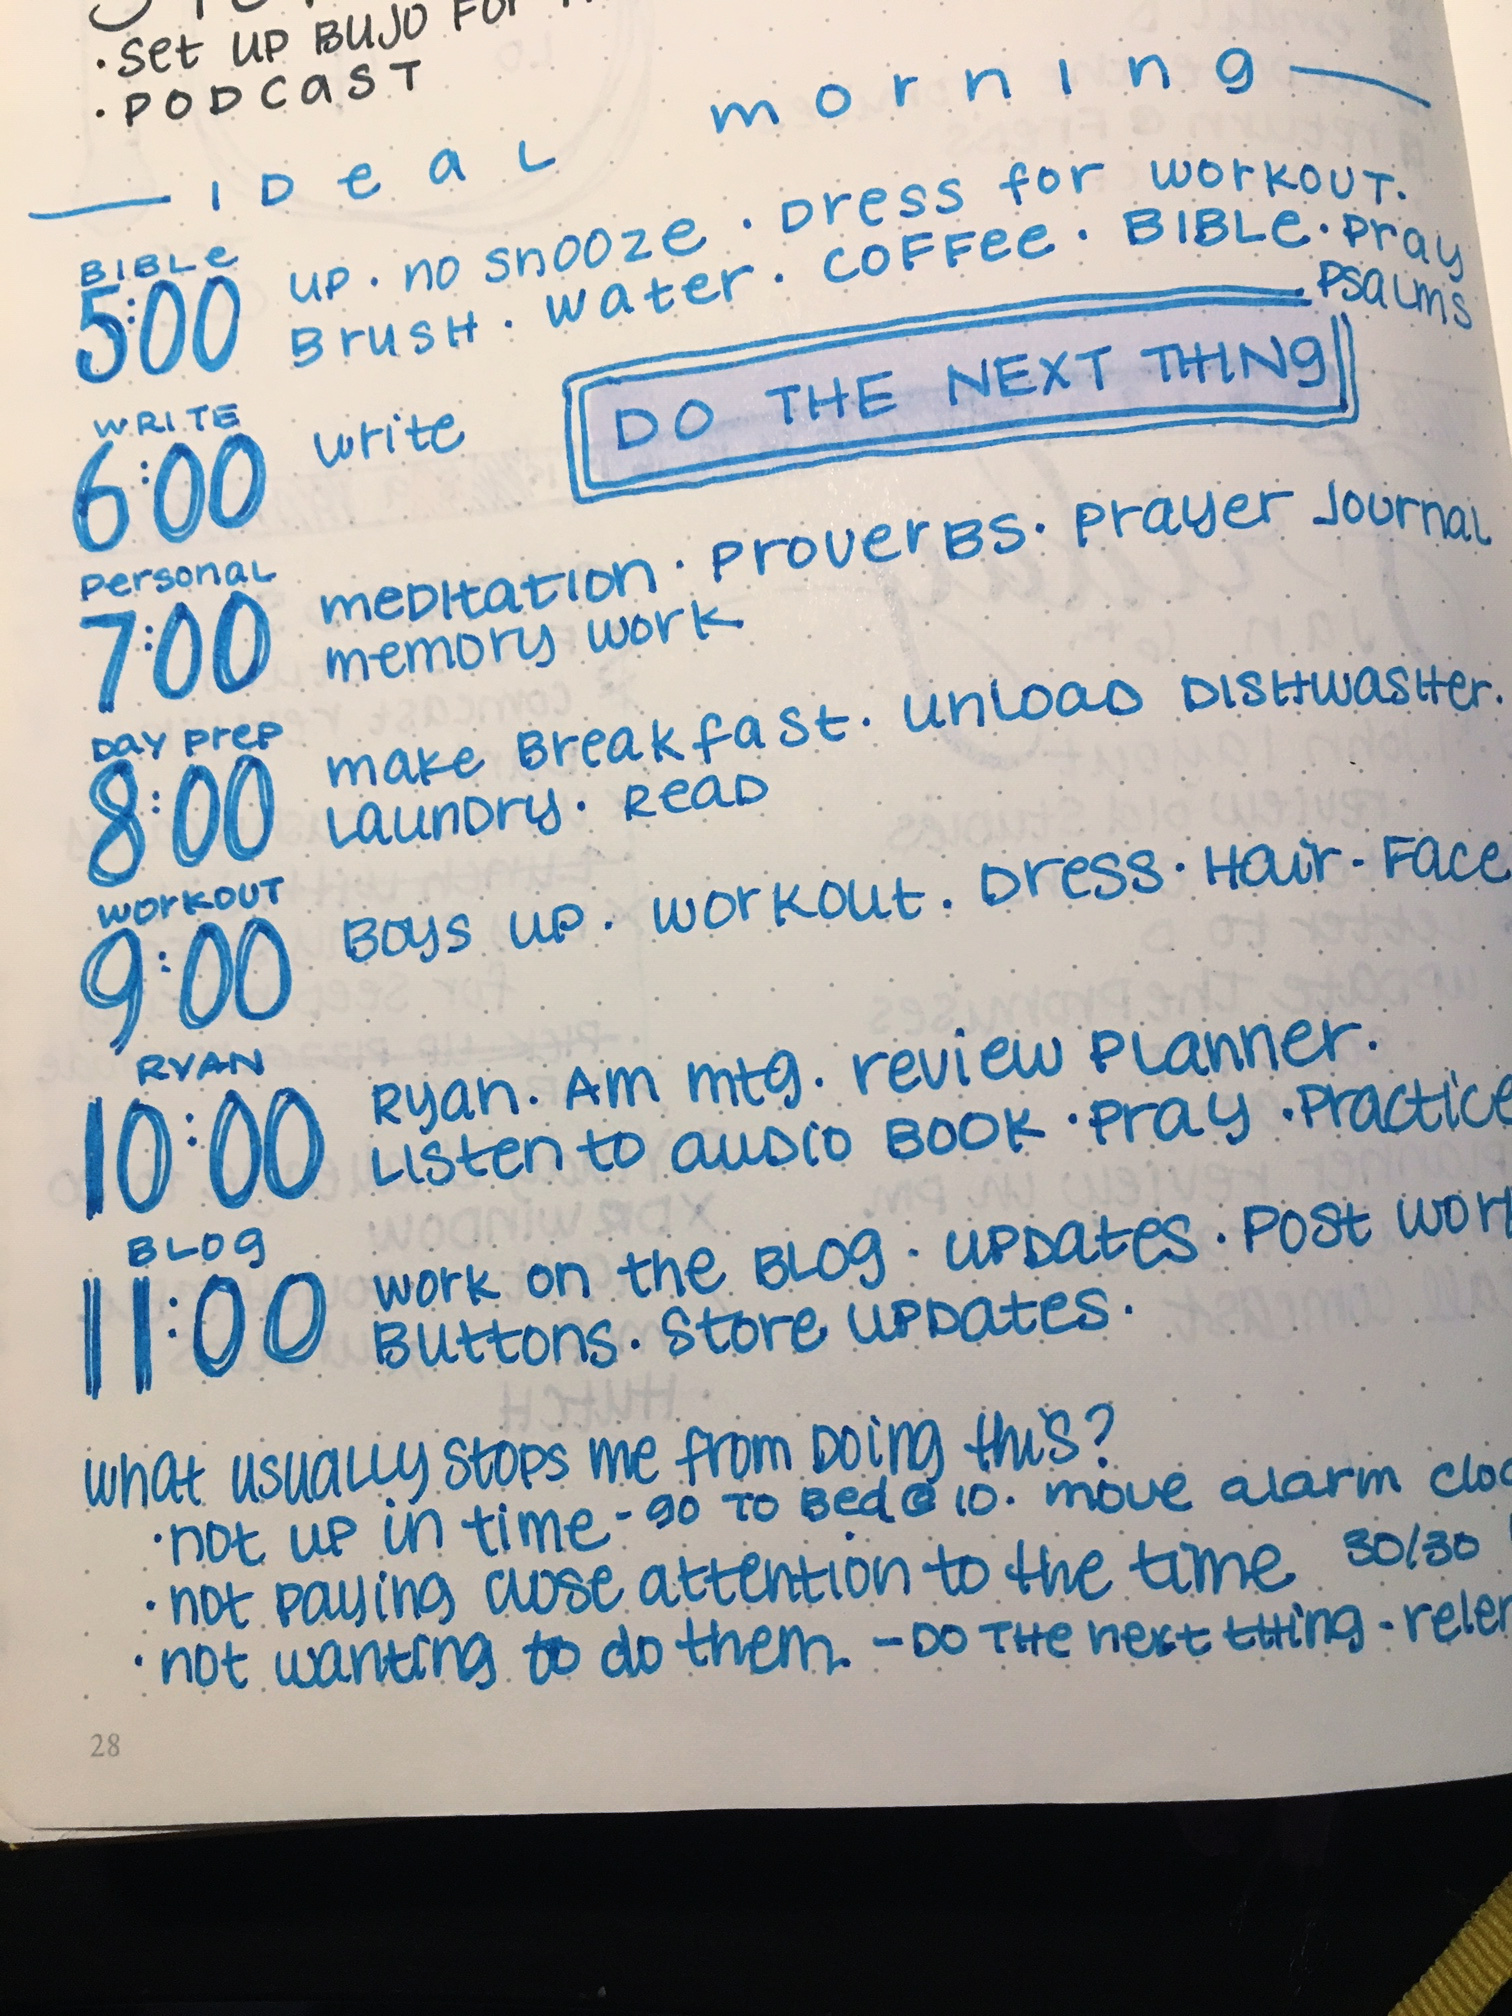 · set up BUJO FOR
· PODCAST
IDeaL morning
BIBLe
5:00 UP · no snooze · Dress for workout.
Brush · water · coffee · BIBLe · Pray
· Psalms
WRITE
6:00 write
DO THE NEXT THING
Personal
7:00 meditation · Proverbs · Prayer Journal
memory work
Day Prep
8:00 make Breakfast · unload Dishwasher.
Laundry · Read
workout
9:00 Boys up · workout. Dress · Hair · Face
RYAN
10:00 Ryan · Am mtg. review Planner.
Listen to audio Book · Pray · Practice
BLOG
11:00 work on the BLOG · updates · Post
Buttons · Store updates.
what usually stops me from Doing this?
· not up in time - go to Bed @ 10. move alarm
· not paying close attention to the time 30/30
· not wanting to do them. - Do The next thing -
28